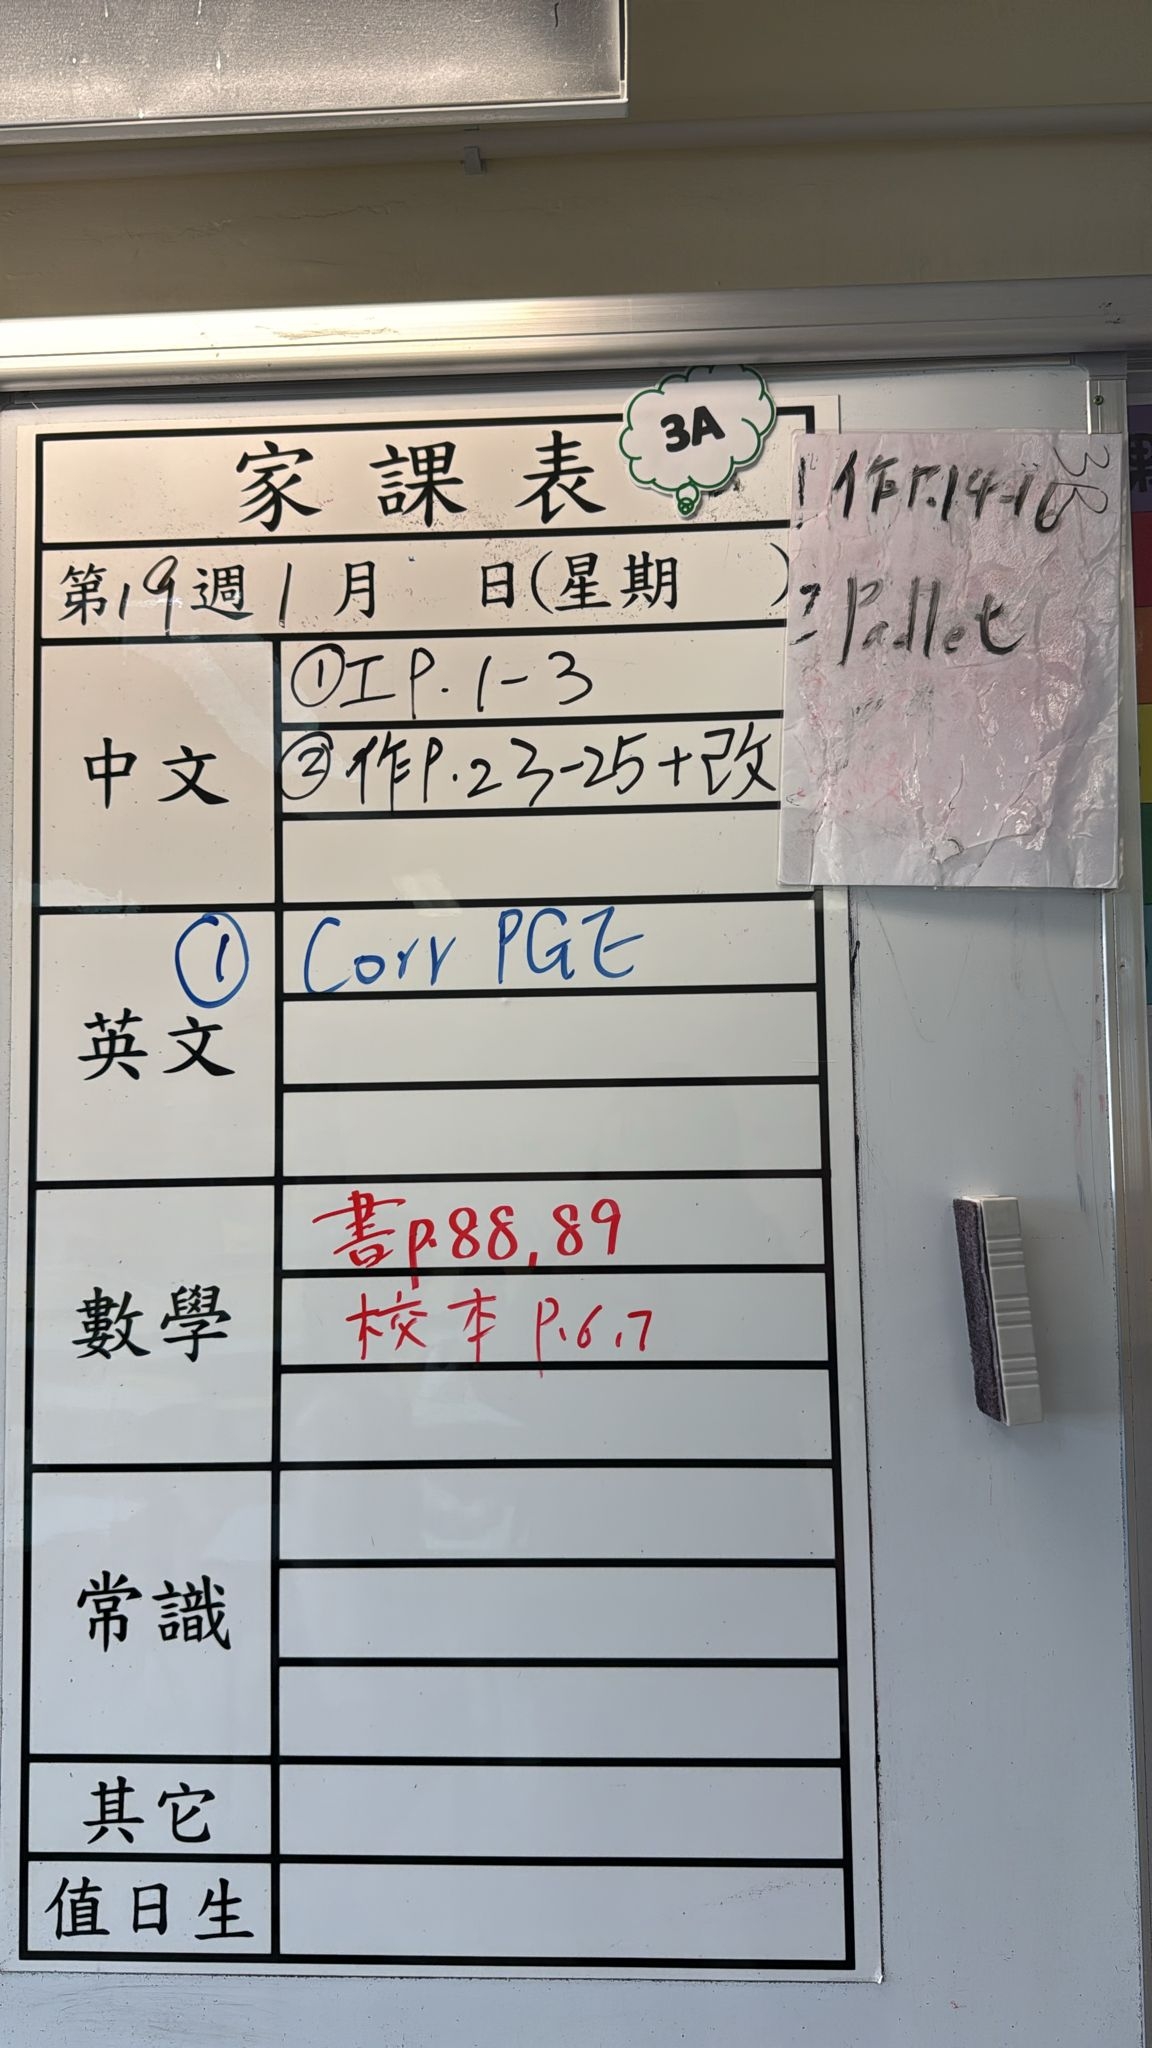 家課表
3A
第19週1月 日(星期 )
中文
①工P.1-3
②作P.23-25+改
英文
① Corr PGE
數學
書p.88,89
校本 p.6,7
常識
其它
值日生
3B
1 作P.14-16
2 Padlet